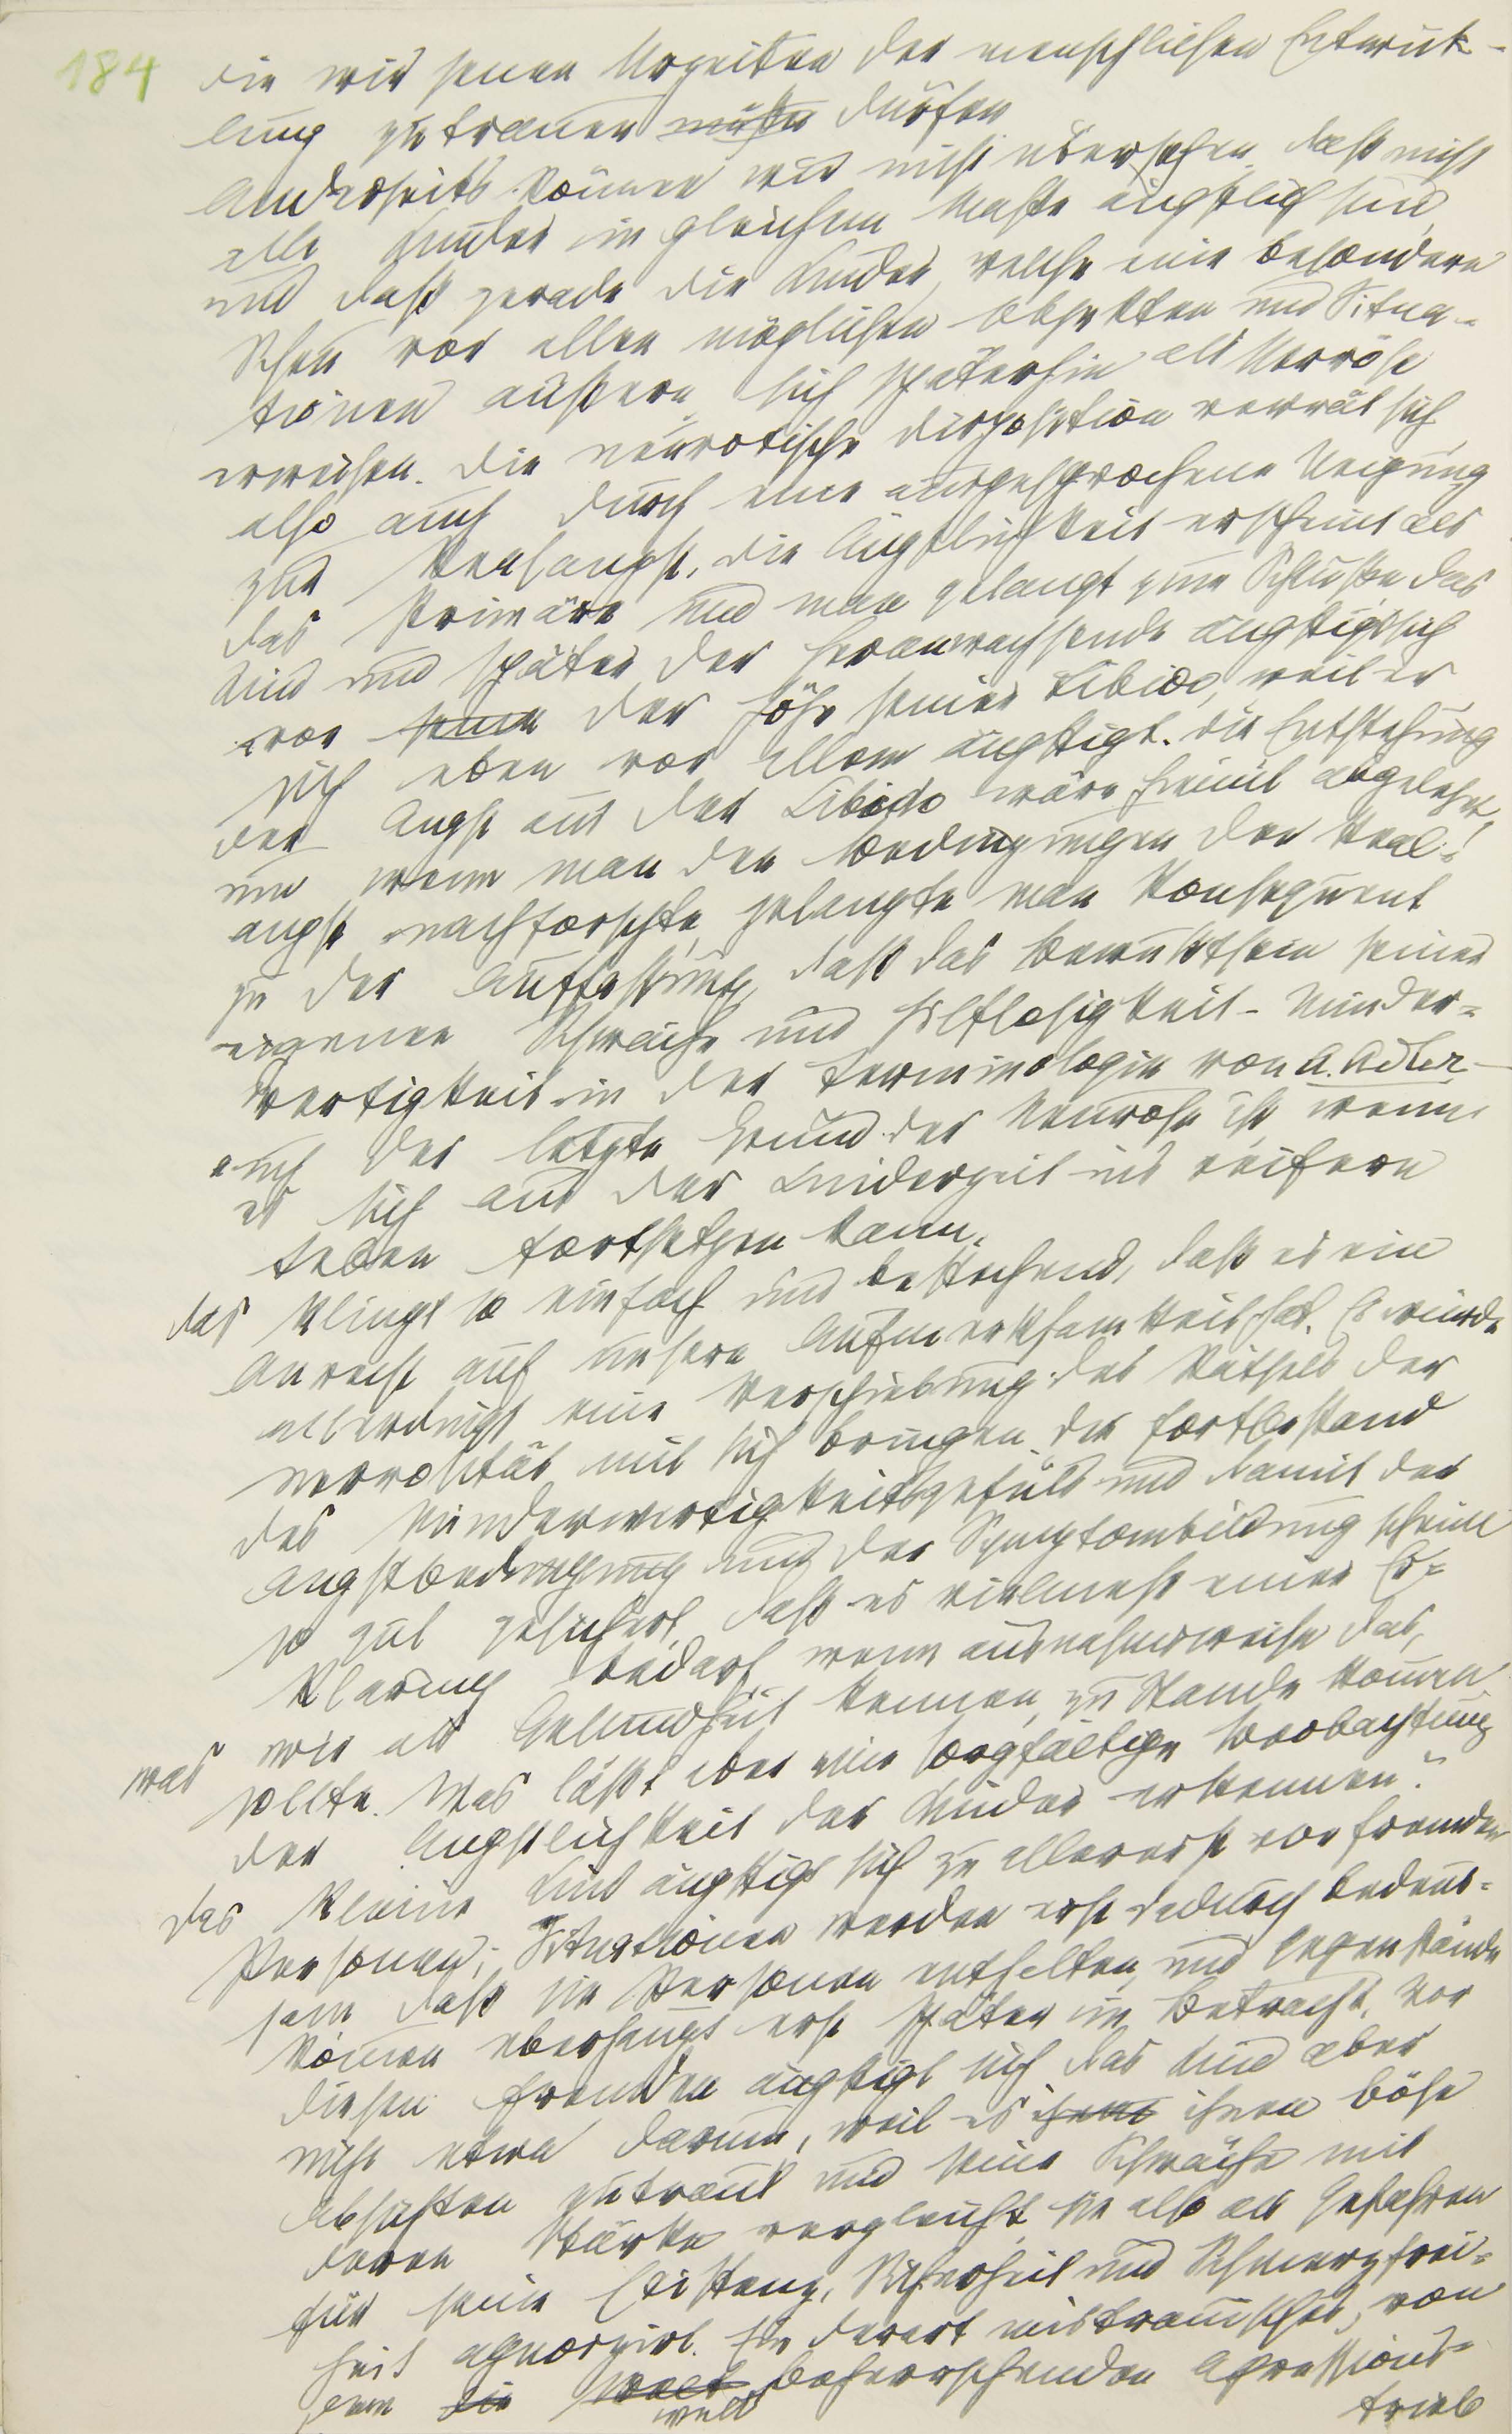 184
die wir jenen Urzeiten der menschlichen Entwick-
lung zutrauen müßen dürfen
Anderseits können wir nicht übersehen, daß nicht
alle Kinder in gleichem Maße ängstlich sind,
und daß gerade die Kinder, welche eine besondere
Scheu vor allen möglichen Objekten und Situa-
tionen äußern, sich späterhin als Nervöse
erweisen. Die neurotische Disposition verrät sich
also auch durch eine ausgesprochene Neigung
zur Realangst, die Ängstlichkeit erscheint als
das Primäre und man gelangt zum Schluße das
Kind und später der Heranwachsende ängstigt sich
vor seiner der Höhe seiner Libido, weil er
sich eben vor allem ängstigt. Die Entstehung
der Angst aus der Libido wäre hiemit abgelehnt,
und wenn man den Bedingungen der Real-
angst nachforschte, gelangte man konsequent
zu der Auffassung, daß das Bewußtsein seiner
eigenen Schwäche und Hilflosigkeit - Minder=
wertigkeit in der Terminologie von A. Adler -
auch der letzte Grund der Neurose ist, wenn
es sich aus der Kinderzeit ins reifere
Leben fortsetzen kann.
Das klingt so einfach und bestechend, daß es ein
Anrecht auf unsere Aufmerksamkeit hat. Es würde
allerdings eine Verschiebung des Rätsels der
Nervosität mit sich bringen. Der Fortbestand
des Minderwertigkeitsgefüls und damit der
Angstbedingung und der Symptombildung scheint
so gut gesichert, daß es vielmehr einer Er=
klärung bedarf, wenn ausnahmsweise das,
was wir als Gesundheit kennen, zu Stande kommen
sollte. Was läßt aber eine sorgfältige Beobachtung
der Ängstlichkeit der Kinder erkennen?
Das kleine Kind ängstigt sich zu allererst vor fremden
Personen; Situationen werden erst dadurch bedeut-
sam daß sie Personen enthalten, und Gegenstände
kommen überhaupt erst später in Betracht. Vor
diesen Fremden ängstigt sich das Kind aber
nicht etwa darum, weil es ihnen böse
Absichten zutraut und seine Schwäche mit
deren Stärke vergleicht, sie also als Gefahren
für seine Existenz, Sicherheit und Schmerzfrei=
heit agnoszirt. Ein derart mistrauisches, von
dem die Welt welt beherrschenden Agressions=
trieb